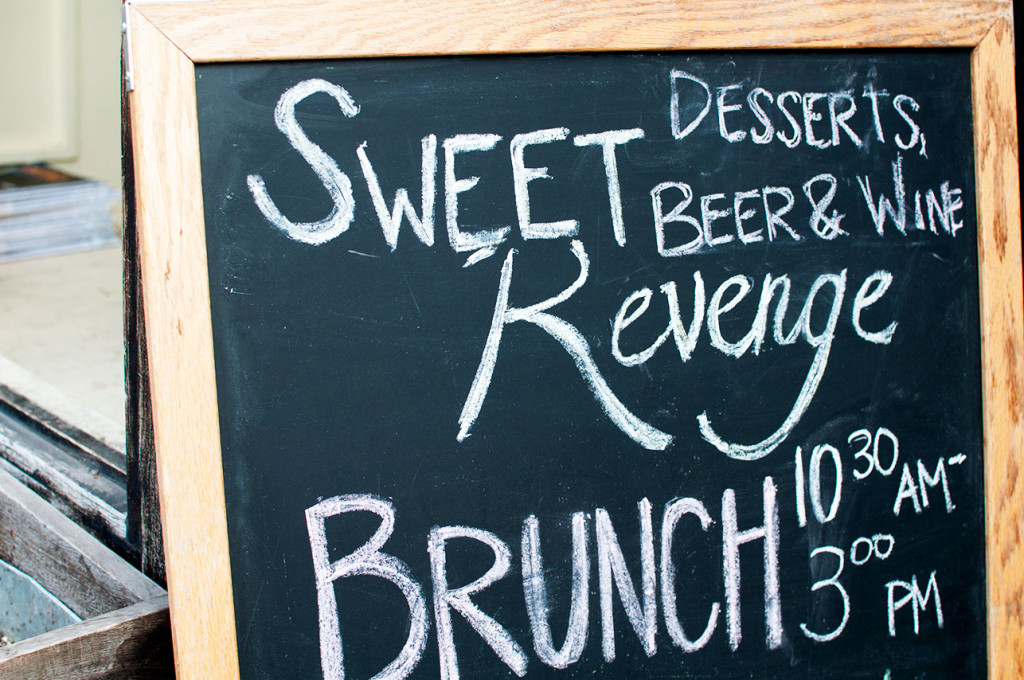 SWEET
Revenge
DESSERTS,
BEER & WINE
BRUNCH
10 30 AM-
3 00 PM